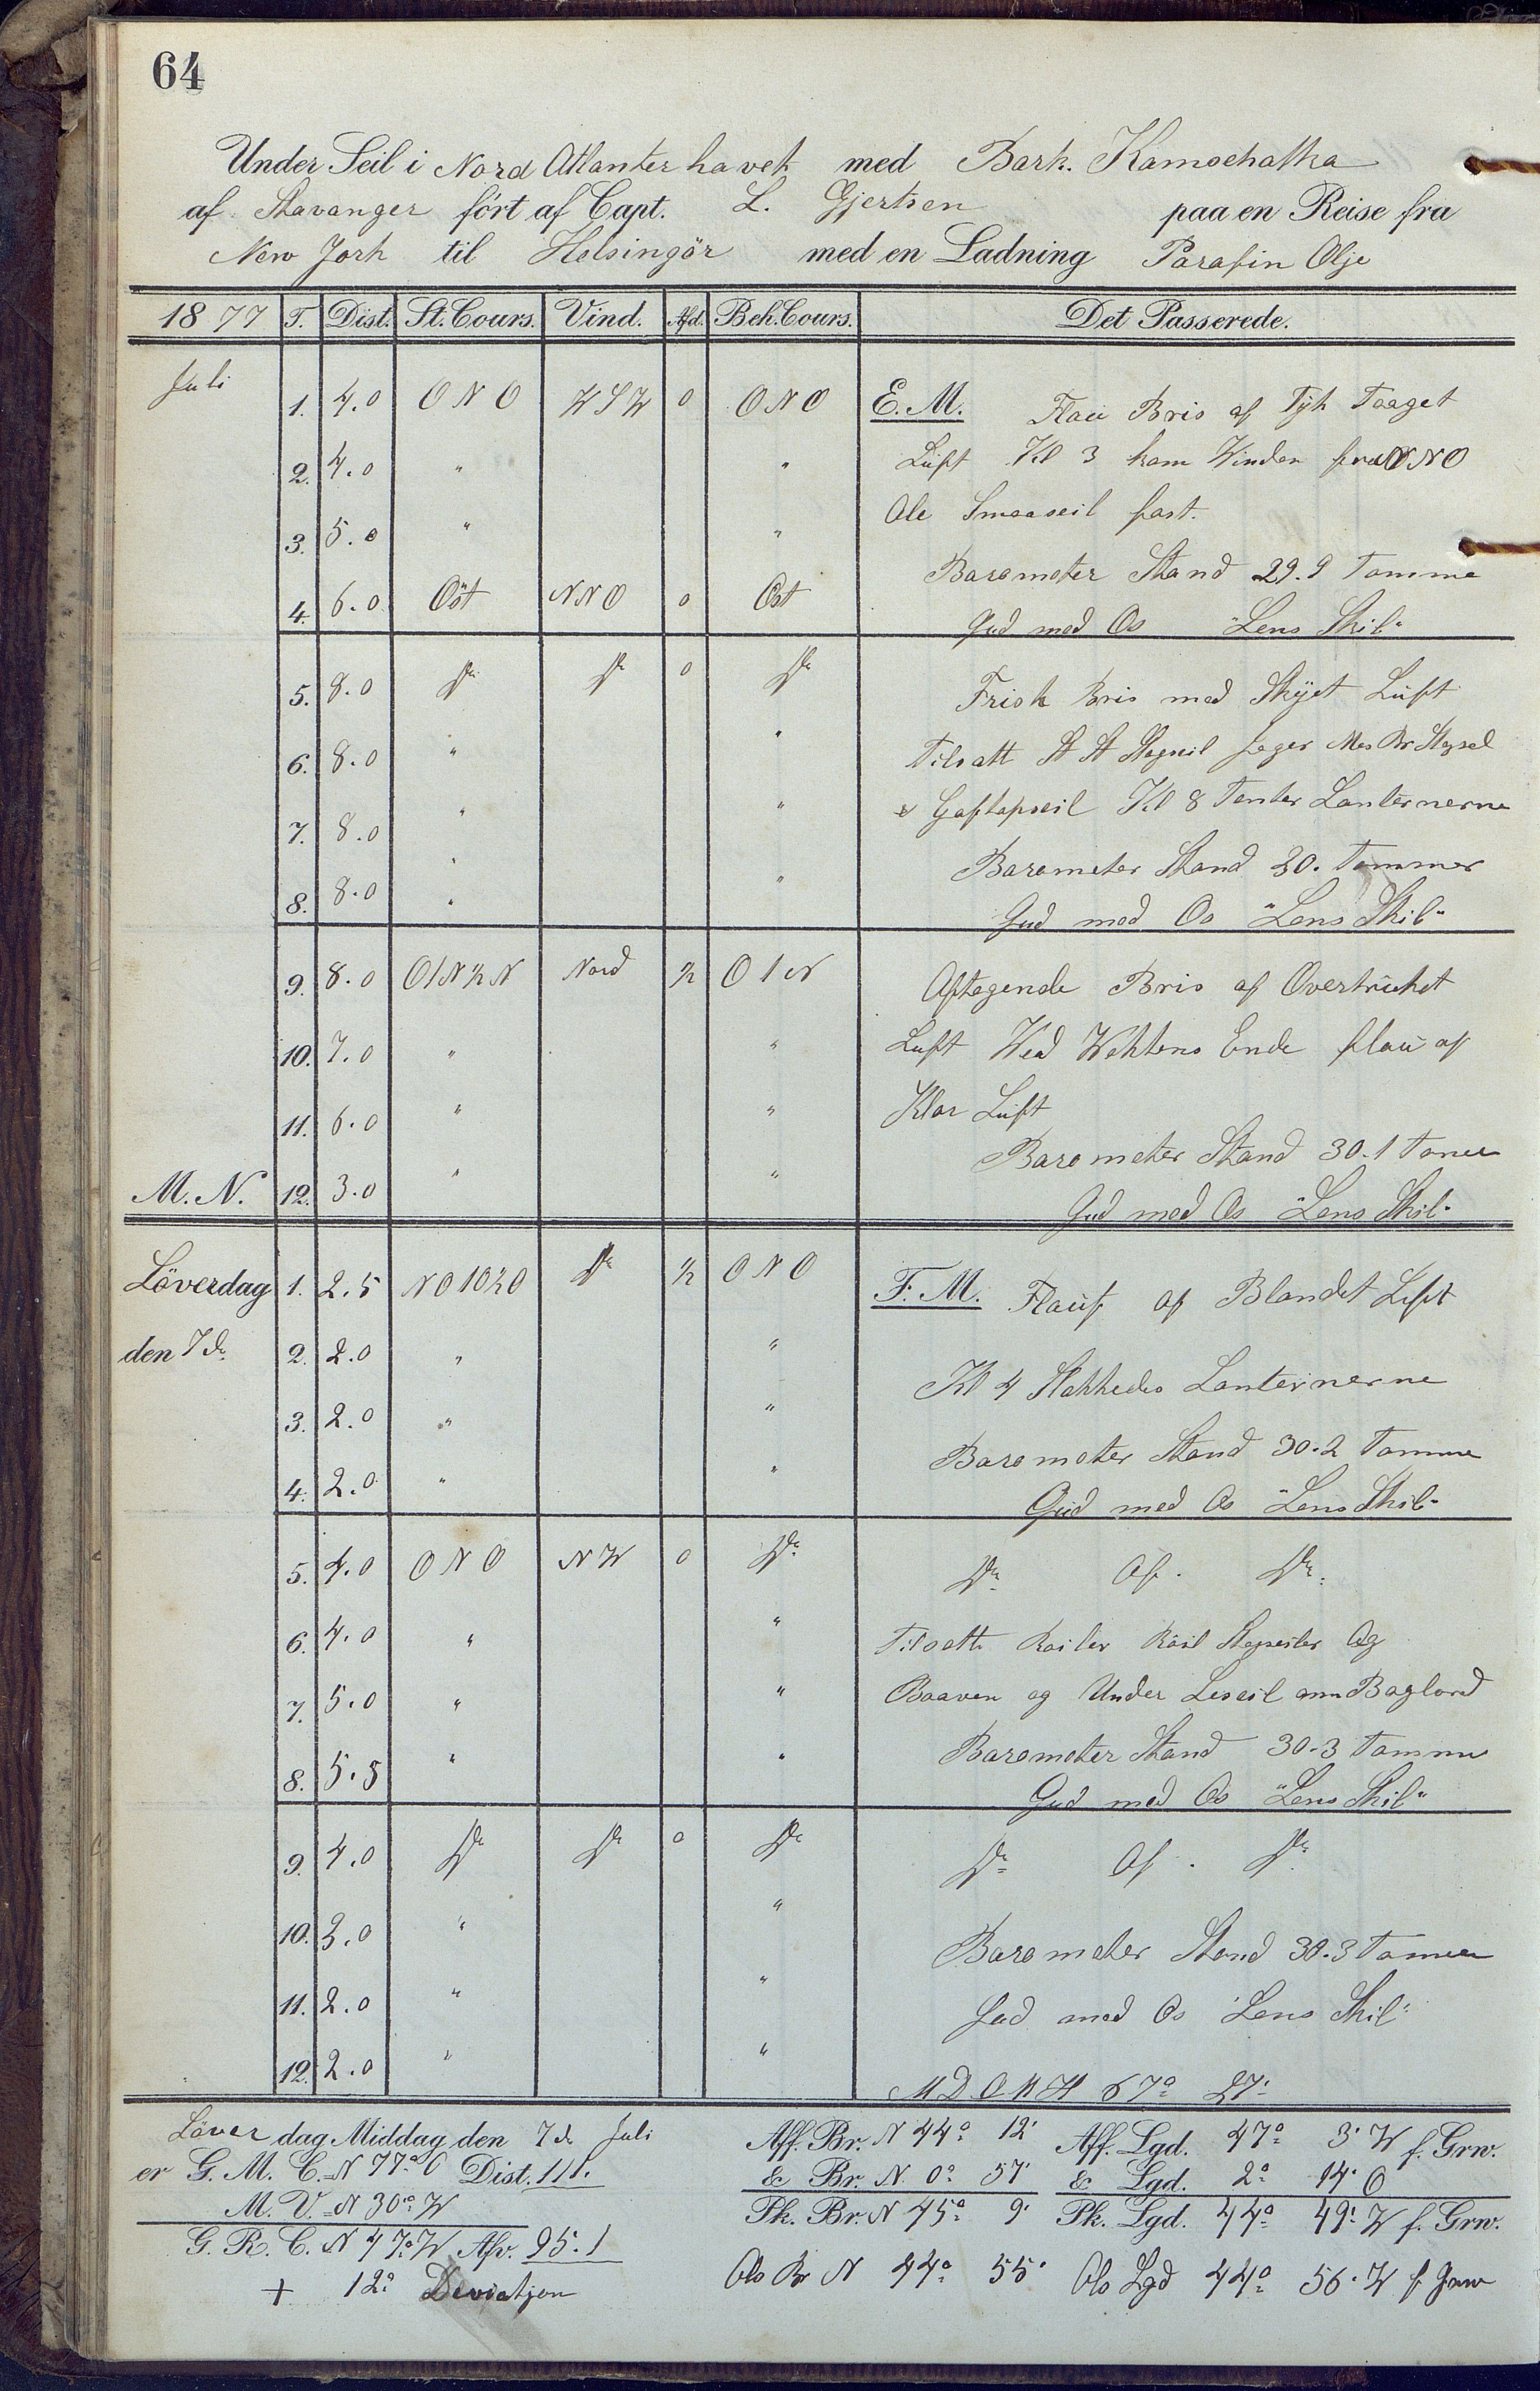 64
Under Seil i Nord Atlanterhavet med Bark. Kamschatka
af Stavanger fört af Capt. L. Gjertsen paa en Reise fra
New Jork til Helsingör med en Ladning Parafin Olje
1877 T. Dist. St. Cours. Vind. Afd. Beh. Cours. Det Passerede.
Juli 1. 4.0 ONO WSW 0 ONO E.M. Flau Bris af Tyk Taaget
2. 4.0 " " Luft Kl 3 kom Vinden fra NNO
3. 5.0 " " Ale Smaaseil fast.
Barometer Stand 29.9 Tomme
4. 6.0 Öst NNO 0 Öst Gud med Os "Lens Skib"
5. 8.0 Do Do 0 Do Frisk Bris med Skyet Luft
6. 8.0 " " Tilsatt St St Stagseil Jager Mes Br Stagsel
7. 8.0 " " & Gaftopseil Kl 8 Tenter Lanternerne
Barometer Stand 30. Tommer
8. 8.0 " " Gud med Os "Lens Skib"
9. 8.0 O1N½N Nord ½ O1N Aftagende Bris af Overtrukket
10. 7.0 " " Luft Ved Vaktens Ende flau af
11. 6.0 " " Klar Luft
Barometer Stand 30.1 Tomme
M.N. 12. 3.0 " " Gud med Os "Lens Skib"
Löverdag 1. 2.5 NO1O½O Do ½ ONO F.M. Flau af Blandet Luft
den 7de 2. 2.0 " " Kl 4 Slukkedes Lanternerne
3. 2.0 " " Barometer Stand 30.2 Tomme
4. 2.0 " " Gud med Os "Lens Skib"
5. 4.0 ONO NW 0 Do Do Af. Do
6. 4.0 " " Tilsatt Roiler Stagseiler Og
7. 5.0 " " Baaven og Under Leseil om Bagbord
Barometer Stand 30.3 Tomme
8. 5.5 " " Gud med Os "Lens Skib"
9. 4.0 Do Do 0 Do Do Af. Do
10. 3.0 " " Barometer Stand 30.3 Tomme
11. 2.0 " " Gud med Os "Lens Skib"
12. 2.0 " " M D O 67° 27'
Löverdag Middag den 7de Juli Aff. Br. N 44° 12' Aff. Lgd. 47° 3' W f. Grw.
er G. M. C. N 77° O Dist. 111. & Br. N. 0° 57' & Lgd. 2° 14' O
M. V. N 30° W Pk. Br. N 45° 9' Pk. Lgd. 44° 49' W f. Grw.
G. R. C. N 47° W Afv. 95.1
+ 12° Deviatjon Obs Br N 44° 55' Obs Lgd 44° 56' W f Grw